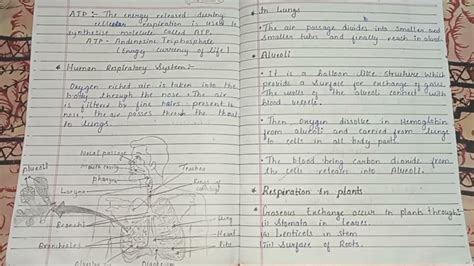 ATP :- The energy released during
cellular respiration is used to
synthesise molecule called ATP.
ATP - Andenosine Triphosphate
(Energy currency of life)
* Human Respiratory System :-
Oxygen riched air is taken into the
body through the nose. The air
is filtered by fine hairs present in
nose, the air passes through the throat
to lungs.
Nasal passage
Mouth cavity
pharynx
Larynx
Trachea
Rings of cartilage
Alveoli
Bronchi
Bronchioles
Lung
Heart
Ribs
Alveolar sac
Diaphragm
* In Lungs
• The air passage divides into smaller and
smaller tubes and finally reach in alveoli
* Alveoli
• It is a balloon like structure which
provide a surface for exchange of gases.
The walls of the alveoli connect with
blood vessels.
• Then Oxygen dissolve in Hemoglobin
from alveoli and carried from lungs
to cells in all body parts.
• The blood bring carbon dioxide from
the cells release into Alveoli.
* Respiration in plants
• Gaseous Exchange occur in plants through:
(i) Stomata in leaves.
(ii) Lenticels in stem
(iii) Surface of Roots.